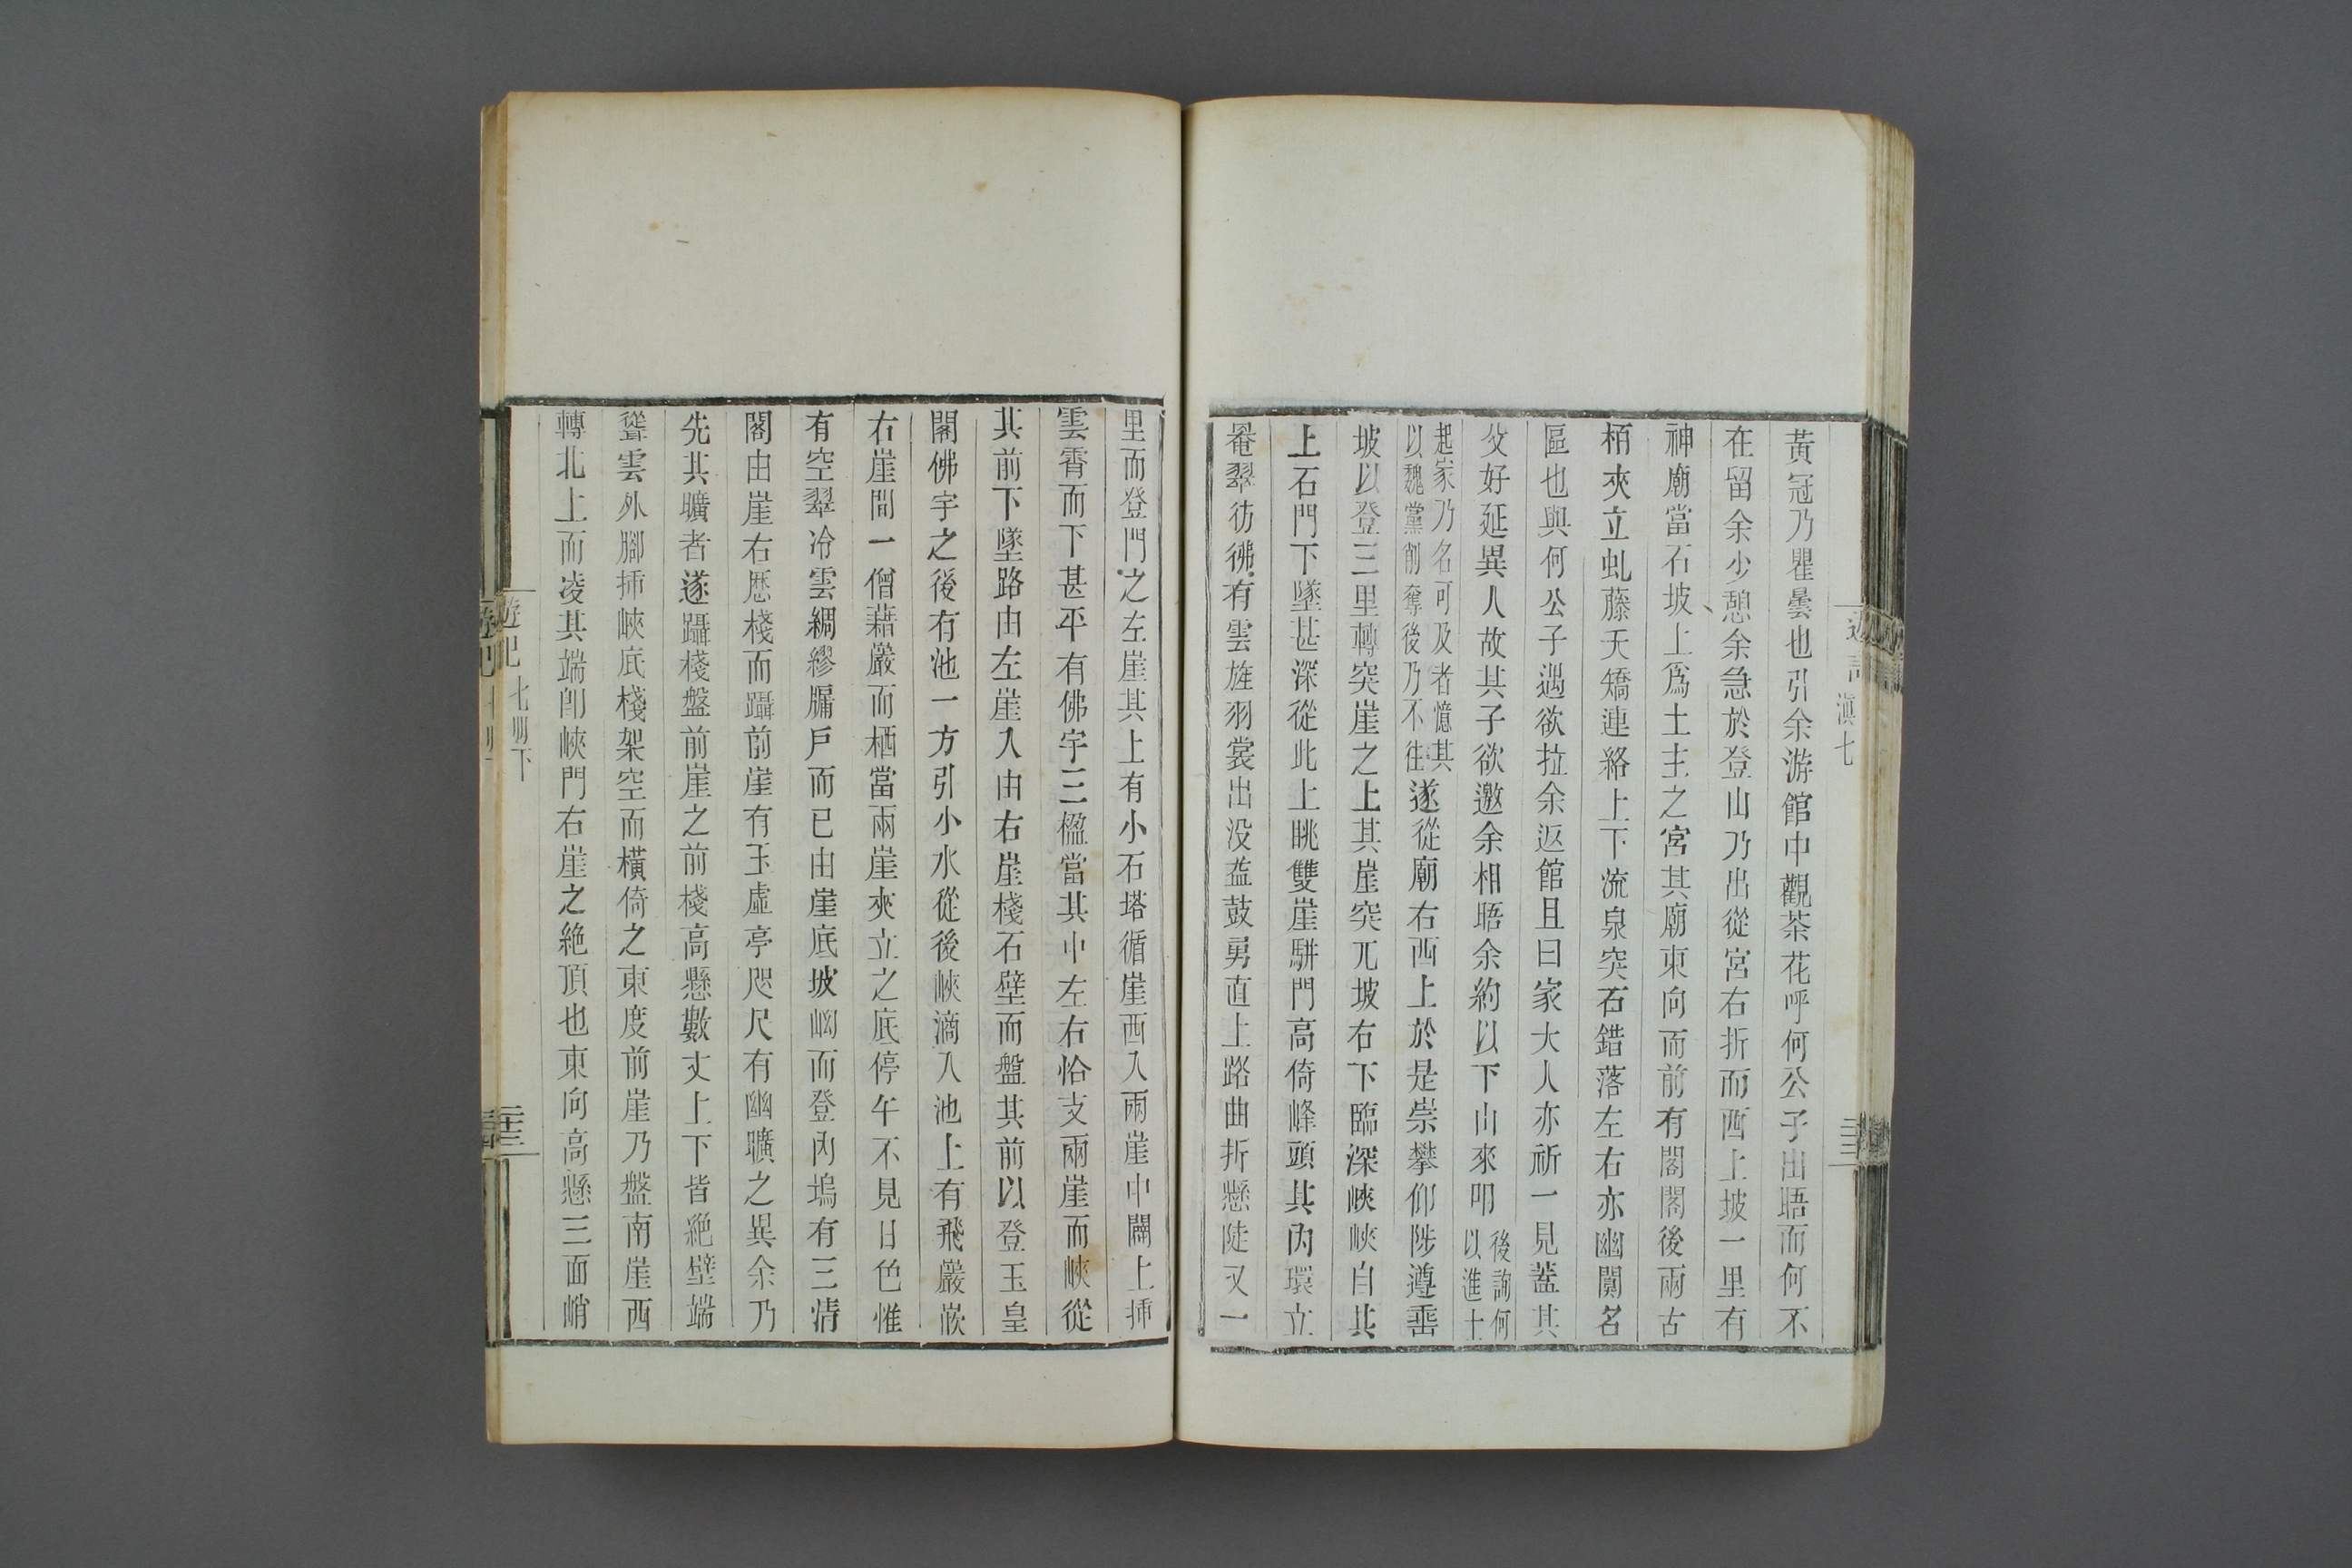 黃冠乃瞿曇也引余游館中觀茶花呼何公子出晤而何不
在留余少憩余急於登山乃出從宮右折而西上坡一里有
神廟當石坡上爲土主之宮其廟東向而前有閣閣後兩古
栢夾立虬藤夭矯連絡上下流泉突石錯落左右亦幽闃名
區也與何公子遇欲拉余返館且曰家大人亦祈一見蓋其
父好延異人故其子欲邀余相晤余約以下山來叩後詢何
以進士
起家乃名可及者憶其
以魏黨削奪後乃不往遂從廟右西上於是崇攀仰陟遵垂
坡以登三里轉突崖之上其崖突兀坡右下臨深峽峽自其
上石門下墜甚深從此上眺雙崖駢門高倚峰頭其內環立
罨翠彷彿有雲旌羽裳出没葢鼓勇直上路曲折懸陡又一
里而登門之左崖其上有小石塔循崖西入兩崖中闢上揷
雲霄而下甚平有佛宇三楹當其中左右恰支兩崖而峽從
其前下墜路由左崖入由右崖棧石壁而盤其前以登玉皇
閣佛宇之後有池一方引小水從後峽滴入池上有飛巖嵌
右崖間一僧藉巖而栖當兩崖夾立之底停午不見日色惟
有空翠冷雲綢繆牖戶而已由崖底坡坳而登內塢有三清
閣由崖右歷棧而躡前崖有玉虛亭咫尺有幽曠之異余乃
先其曠者遂躡棧盤前崖之前棧高懸數丈上下皆絕壁端
聳雲外腳揷峽底棧架空而橫倚之東度前崖乃盤南崖西
轉北上而凌其端卽峽門右崖之絶頂也東向高懸三面峭
遊記
滇七